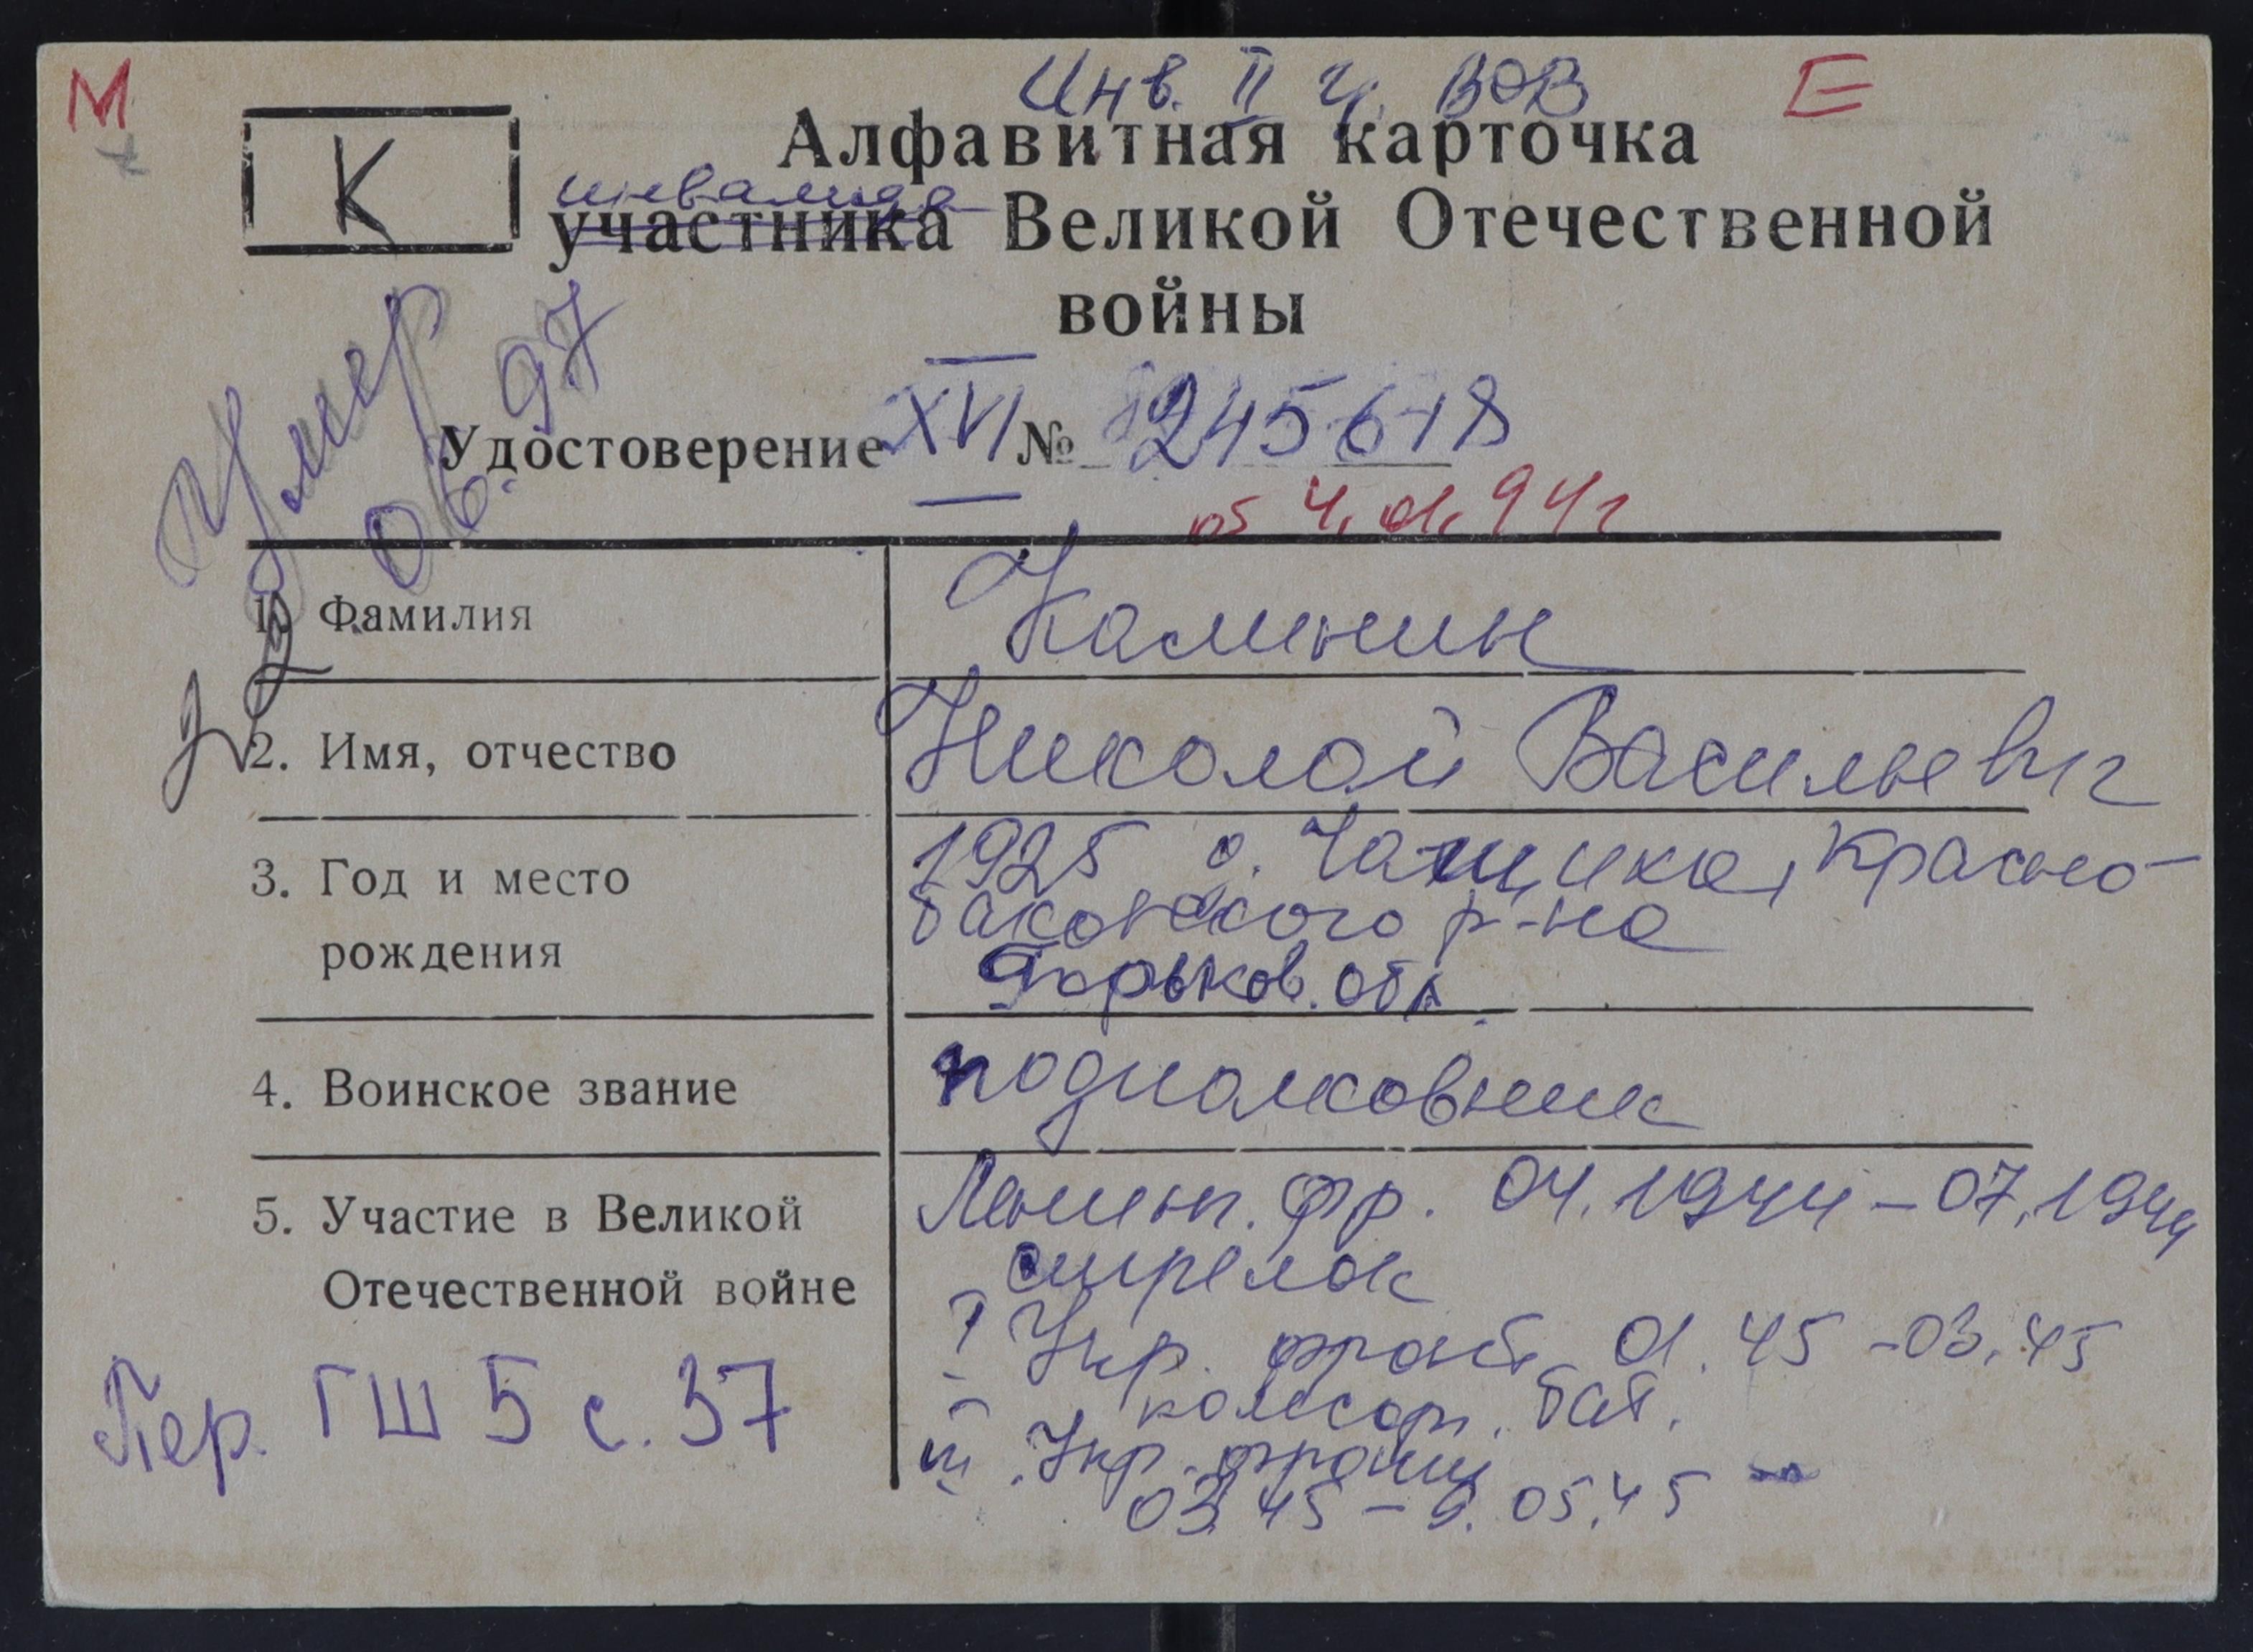 М
Инв. II г. ВОВ
Е
К
Алфавитная карточка
инвалида
участника Великой Отечественной
войны
Умер
06.97
Удостоверение XVI № 245618
от 4.01.94г
1. Фамилия
Калинин
2. Имя, отчество
Николай Васильевич
3. Год и место
рождения
1925 Чащиха, Красно-
баковского р-на
Горьков. обл.
4. Воинское звание
подполковник
5. Участие в Великой
Отечественной войне
Ленинг. фр. 04.1944 – 07.1944
стрелок
I Укр. фронт 01.45 – 03.45
комсорг. бат.
III Укр. фронт
03.45 – 9.05.45
Пер. ГШ 5 с. 37